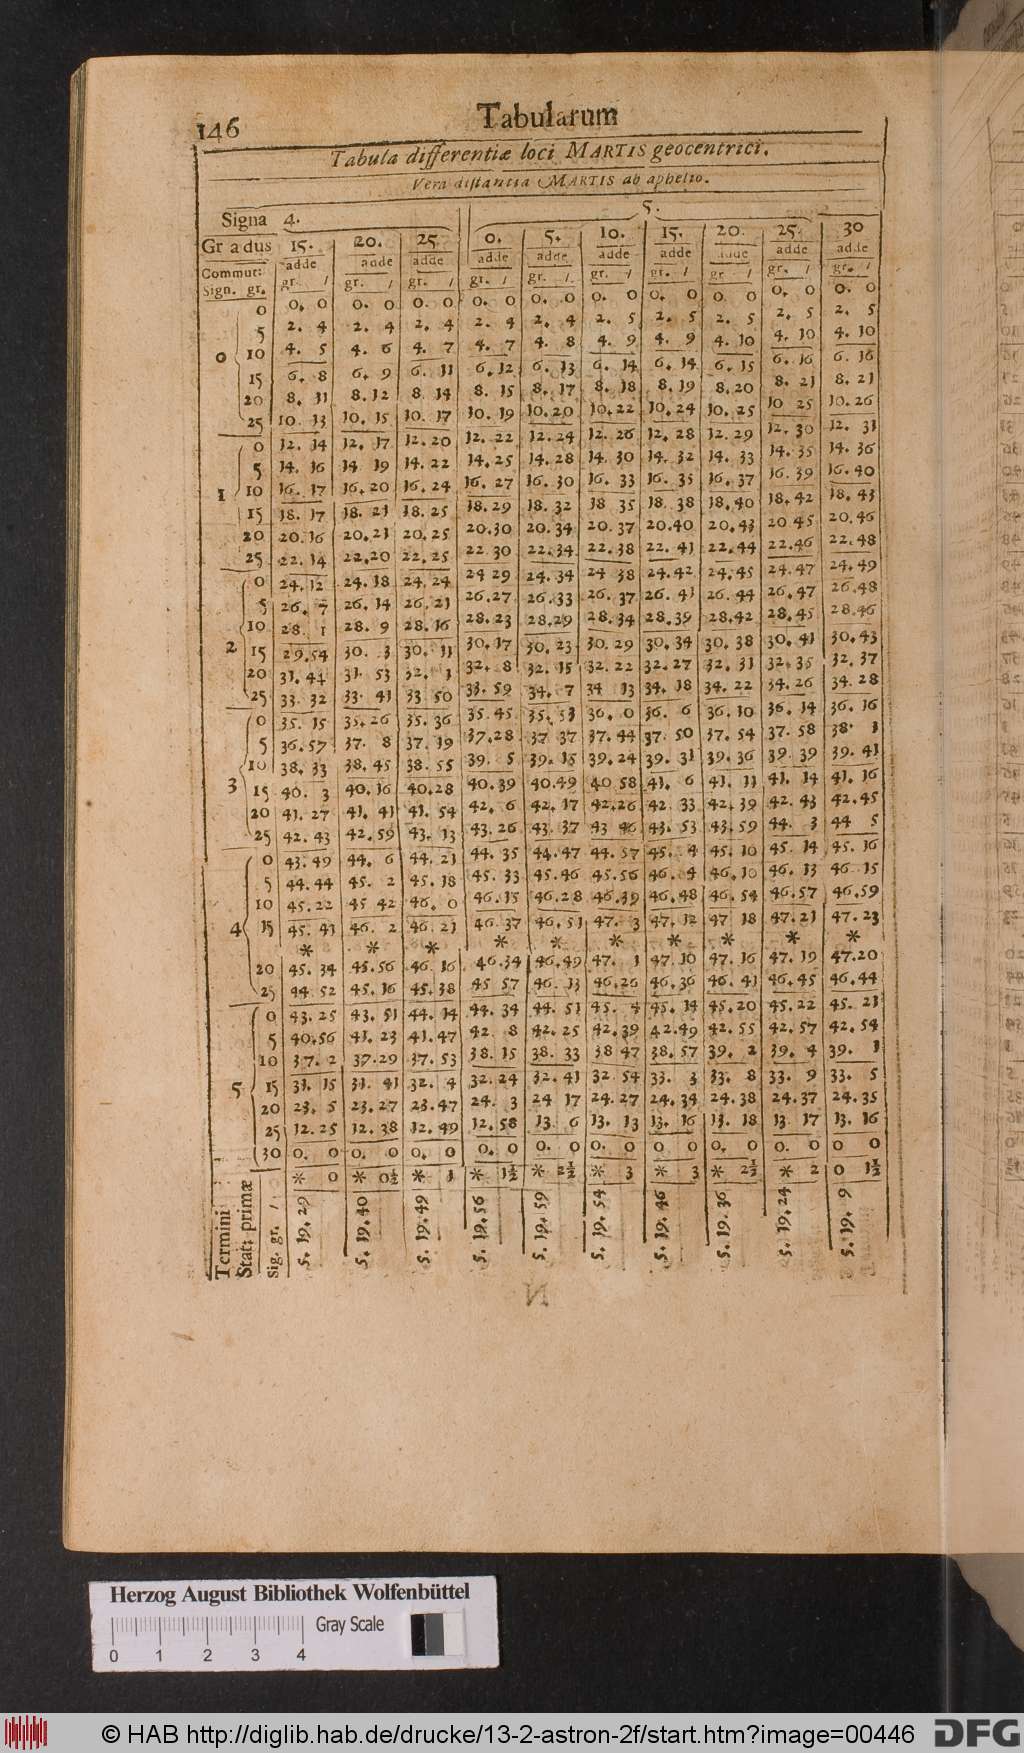 146 Tabularum
Tabula differentiæ loci MARTIS geocentrici.
Vera distantia MARTIS ab aphelio.
Signa 4. 5.
Gradus 15. 20. 25 0. 5. 10. 15. 20. 25 30
Commut: adde adde adde adde adde adde adde adde adde adde
Sign. gr. gr. / gr. / gr. / gr. / gr. / gr. / gr. / gr / gr. / gr. /
0 0 0. 0 0. 0 0. 0 0. 0 0. 0 0. 0 0. 0 0. 0 0. 0 0. 0
5 2. 4 2. 4 2. 4 2. 4 2. 4 2. 5 2. 5 2. 5 2. 5 2. 5
10 4. 5 4. 6 4. 7 4. 7 4. 8 4. 9 4. 9 4. 10 4. 10 4. 10
15 6. 8 6. 9 6. 11 6. 12 6. 13 6. 14 6. 14 6. 15 6. 16 6. 16
20 8. 11 8. 12 8 14 8. 15 8. 17 8. 18 8. 19 8. 20 8. 21 8. 21
25 10 13 10. 15 10. 17 10. 19 10. 20 10. 22 10. 24 10. 25 10 25 10. 26
1 0 12. 14 12. 17 12. 20 12. 22 12. 24 12. 26 12. 28 12. 29 12. 30 12. 31
5 14. 16 14 19 14. 22 14. 25 14. 28 14 30 14. 32 14. 33 14. 35 14. 36
10 16. 17 16. 20 16. 24 16. 27 16. 30 16. 33 16. 35 16. 37 16. 39 16. 40
15 18. 17 18. 21 18. 25 18. 29 18. 32 18 35 18. 38 18. 40 18. 42 18. 43
20 20. 16 20. 21 20. 25 20. 30 20. 34 20. 37 20. 40 20. 43 20 45 20. 46
25 22. 14 22. 20 22. 25 22 30 22. 34 22. 38 22. 41 22. 44 22. 46 22. 48
2 0 24. 12 24. 18 24. 24 24 29 24. 34 24 38 24. 42 24. 45 24. 47 24. 49
5 26. 7 26. 14 26. 21 26. 27 26. 33 26. 37 26. 41 26. 44 26. 47 26. 48
10 28. 1 28. 9 28. 16 28. 23 28. 29 28. 34 28. 39 28. 42 28. 45 28. 46
15 29. 54 30. 3 30. 11 30. 17 30. 23 30. 29 30. 34 30. 38 30. 41 30. 43
20 31. 44 31. 53 32. 1 32. 8 32. 15 32. 22 32. 27 32. 31 32. 35 32. 37
25 33 32 33. 41 33 50 33. 59 34. 7 34 13 34. 18 34. 22 34. 26 34. 28
3 0 35. 15 35. 26 35. 36 35. 45 35. 53 36. 0 36. 6 36. 10 36. 14 36. 16
5 36. 57 37. 8 37. 19 37. 28 37 37 37. 44 37. 50 37. 54 37. 58 38. 1
10 38. 33 38. 45 38. 55 39. 5 39. 15 39. 24 39. 31 39. 36 39 39 39. 41
15 40. 3 40. 16 40. 28 40. 39 40. 49 40 58 41. 6 41. 11 41. 14 41. 16
20 41. 27 41. 41 41. 54 42. 6 42. 17 42. 26 42 33 42. 39 42. 43 42. 45
25 42. 43 42. 59 43. 13 43. 26 43. 37 43 46 43. 53 43. 59 44. 3 44 5
4 0 43. 49 44. 6 44. 21 44. 35 44. 47 44. 57 45. 4 45. 10 45. 14 45. 16
5 44. 44 45. 2 45. 18 45. 33 45. 46 45. 56 46. 4 46. 10 46. 13 46 15
10 45. 22 45 42 46. 0 46. 15 46. 28 46. 39 46. 48 46. 54 46. 57 46. 59
15 45. 41 46. 2 46. 21 46. 37 46. 51 47. 3 47. 12 47 18 47. 21 47. 23
* * * * * * * * * *
20 45. 34 45. 56 46. 16 46. 34 46. 49 47. 1 47. 10 47. 16 47. 19 47. 20
25 44 52 45. 16 45. 38 45 57 46. 13 46. 26 46. 36 46. 41 46. 45 46. 44
5 0 43. 25 43. 51 44. 14 44. 34 44. 51 45. 4 45. 14 45. 20 45. 22 45. 21
5 40. 56 41. 23 41. 47 42. 8 42. 25 42. 39 42. 49 42. 55 42. 57 42. 54
10 37. 2 37. 29 37. 53 38. 15 38. 33 38 47 38. 57 39. 2 39. 4 39. 1
15 31. 15 31. 41 32. 4 32. 24 32. 41 32 54 33. 3 33. 8 33. 9 33. 5
20 23. 5 23. 27 23. 47 24. 3 24 17 24. 27 24. 34 24. 38 24. 37 24. 35
25 12. 25 12. 38 12. 49 12. 58 13. 6 13. 13 13. 16 13. 18 13 17 13. 16
30 0. 0 0. 0 0. 0 0. 0 0. 0 0. 0 0 0 0. 0 0. 0 0 0
* 0 * 0½ * 1 * 1½ * 2½ * 3 * 3 * 2½ * 2 0 1½
Termini
Stat: primæ
Sig. gr. / 5. 19. 29 5. 19. 40 5. 19. 49 5. 19. 56 5. 19. 59 5. 19. 54 5. 19. 46 5. 19. 36 5. 19. 24 5. 19. 9
Herzog August Bibliothek Wolfenbüttel
Gray Scale
0 1 2 3 4
© HAB http://diglib.hab.de/drucke/13-2-astron-2f/start.htm?image=00446 DFG